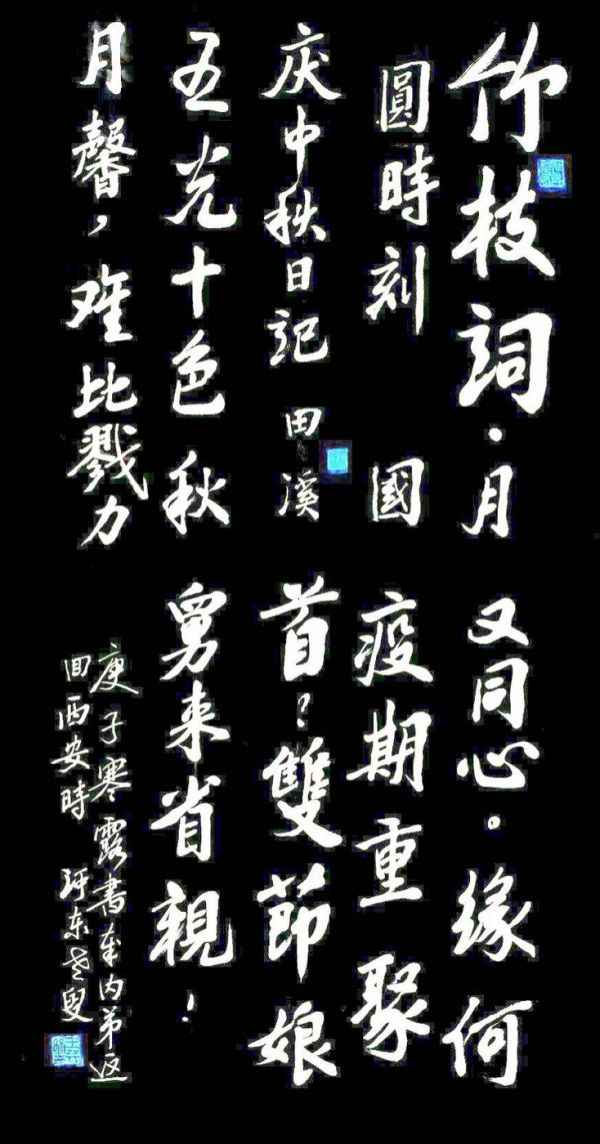 竹枝詞·月
圓時刻 國
庆中秋日記 田溪
五光十色秋
月馨，难比戮力
又同心。缘何
疫期重聚
首？雙節娘
舅来省親！
庚子寒露書奉内弟返
回西安時 东老叟